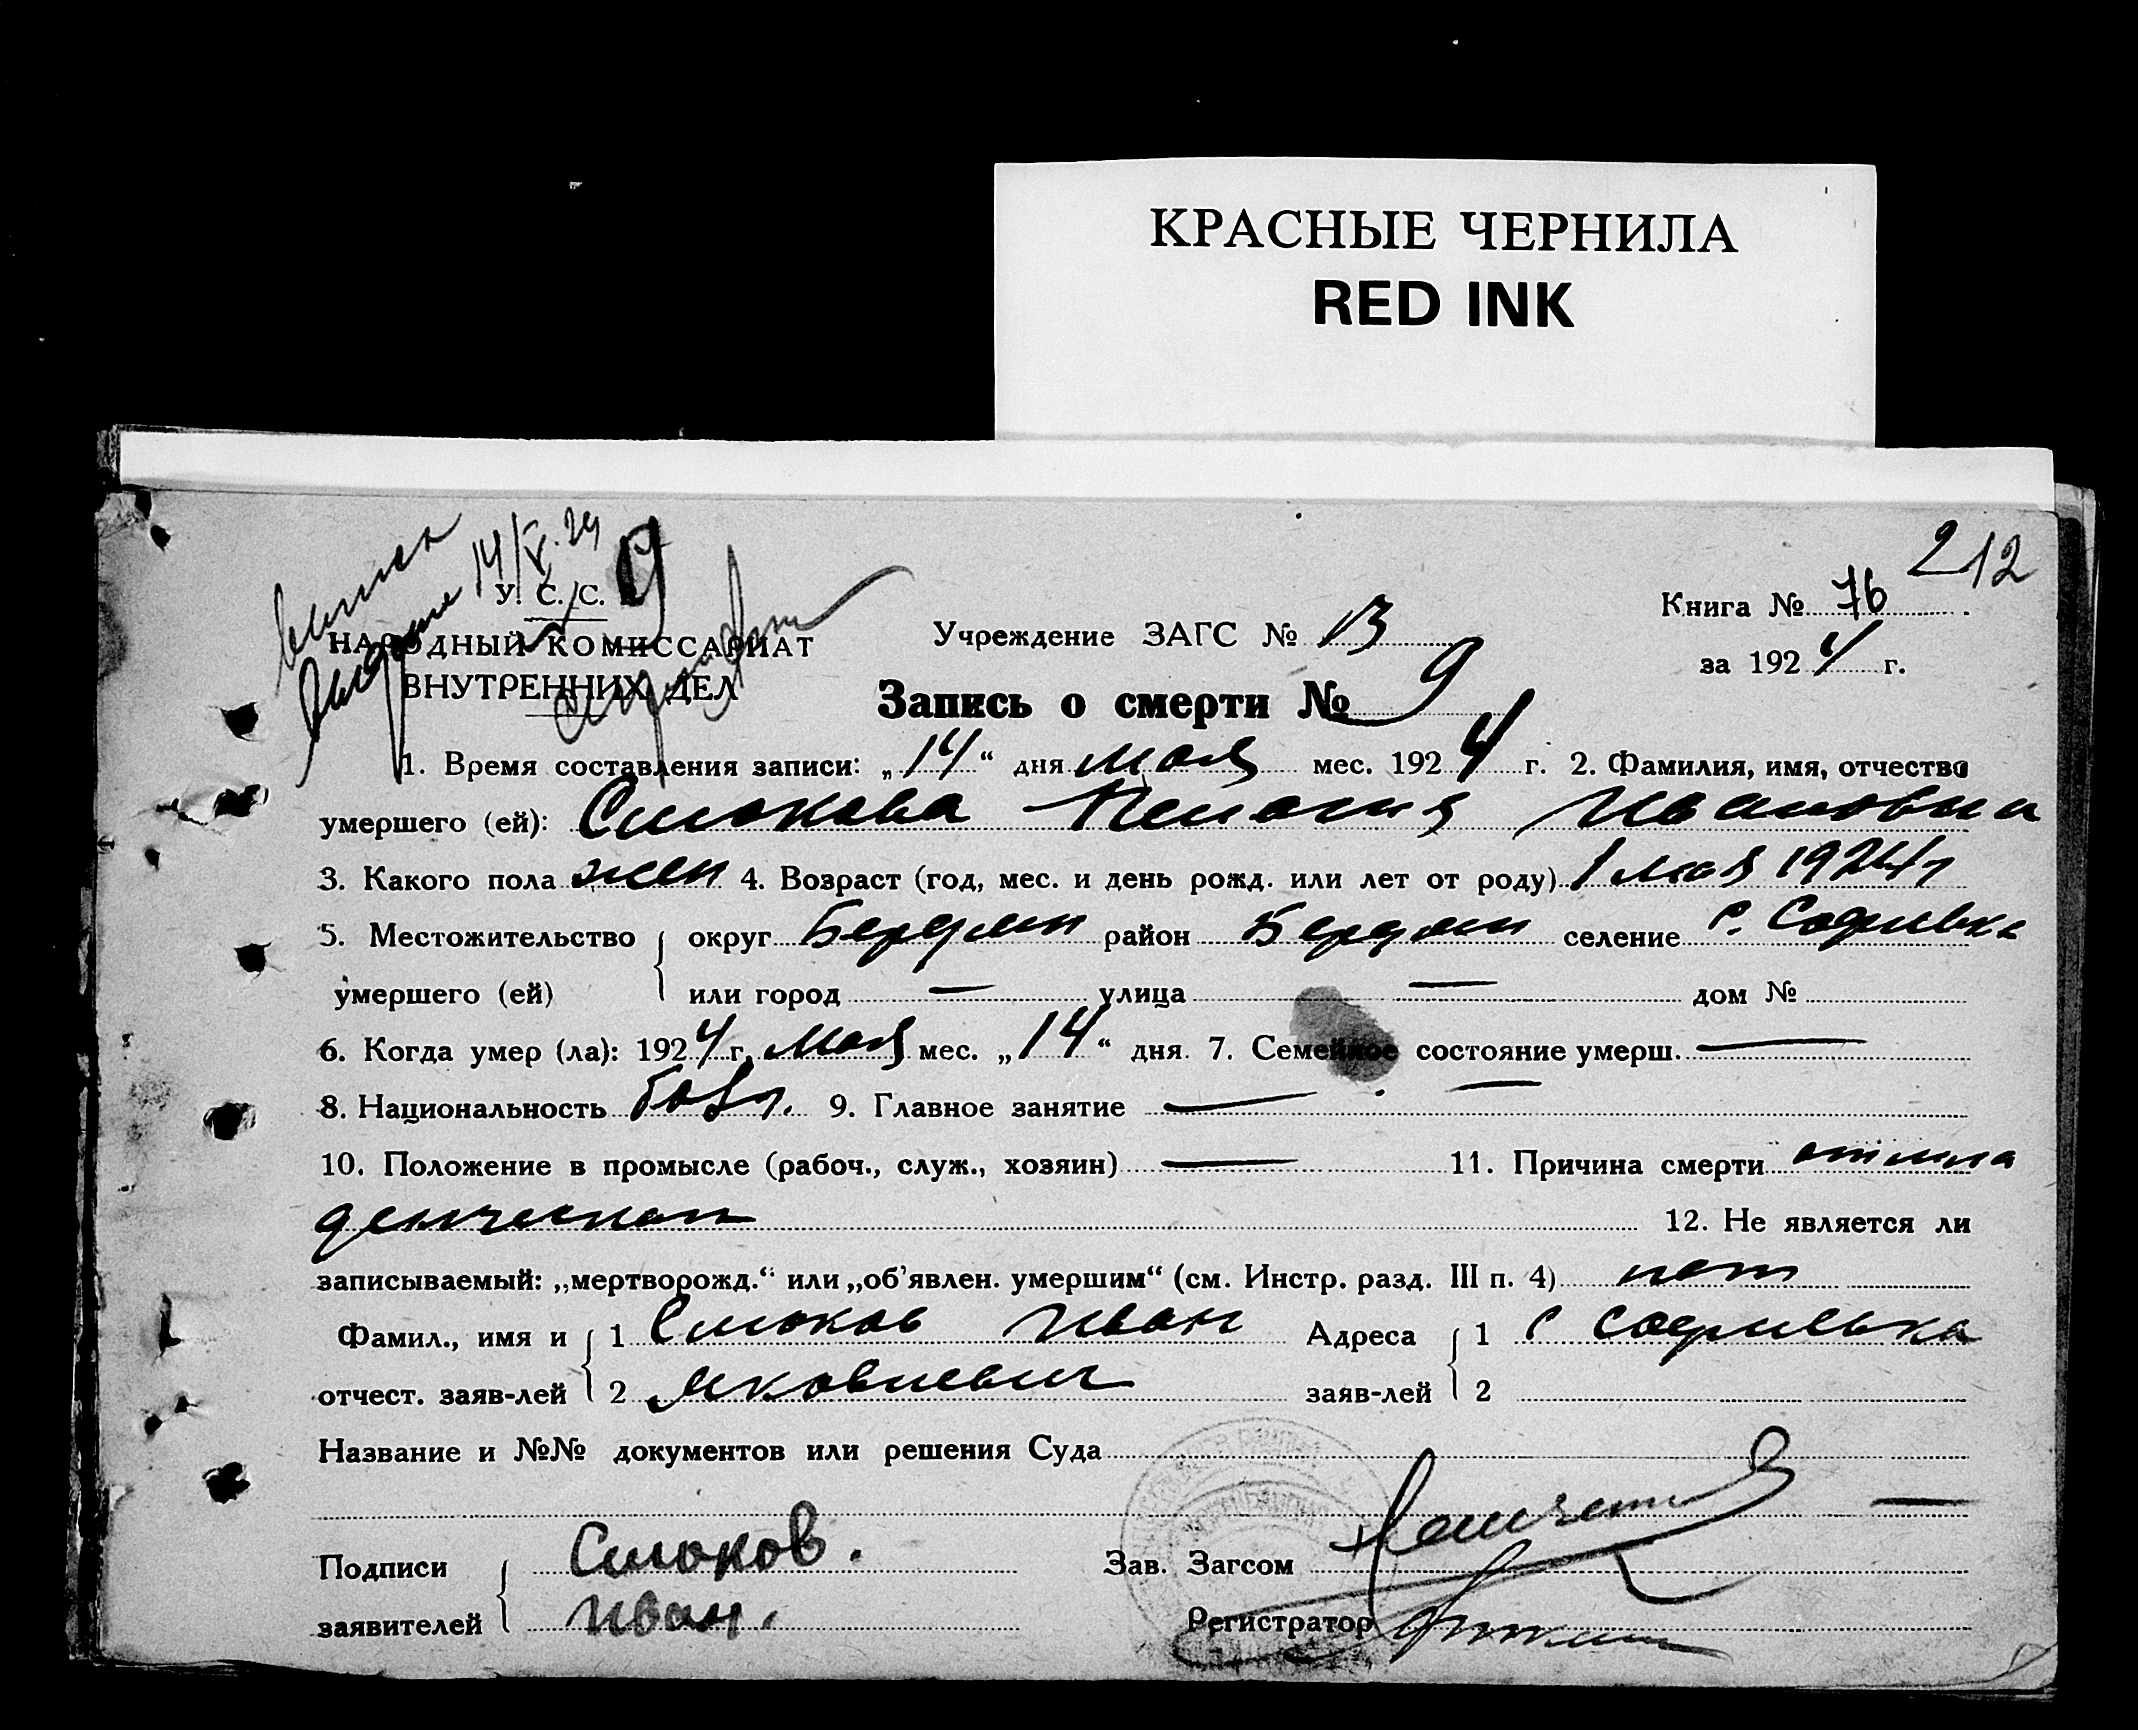 КРАСНЫЕ ЧЕРНИЛА
RED INK
212
14/V.24
У. С. С. Р.
НАРОДНЫЙ КОМИССАРИАТ
ВНУТРЕННИХ ДЕЛ
Учреждение ЗАГС № 13
Книга № 76
за 1924 г.
Запись о смерти № 9
1. Время составления записи: „14“ дня мая мес. 1924 г. 2. Фамилия, имя, отчество
умершего (ей): Слюкова Пелагия Ивановна
3. Какого пола жен 4. Возраст (год, мес. и день рожд. или лет от роду) 1 мая 1924 г
5. Местожительство округ Бердян район Бердян селение с. Софиевка
умершего (ей) или город — улица — дом №
6. Когда умер (ла): 1924 г. мая мес. „14“ дня 7. Семейное состояние умерш. —
8. Национальность болг. 9. Главное занятие — —
10. Положение в промысле (рабоч., служ., хозяин) — 11. Причина смерти
12. Не является ли
записываемый: „мертворожд.“ или „об’явлен. умершим“ (см. Инстр. разд. III п. 4) нет
Фамил., имя и 1 Слюков Иван Адреса 1 с Софиевка
отчест. заяв-лей 2 Яковлевич заяв-лей 2
Название и №№ документов или решения Суда
—
Подписи Слюков. Зав. Загсом
заявителей Иван. Регистратор